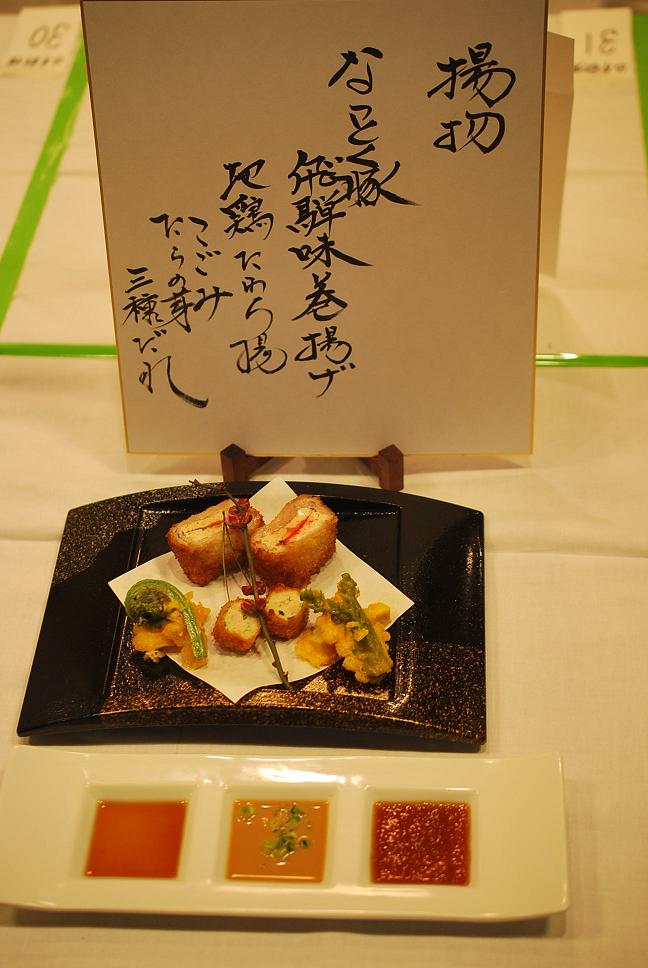 揚物
なっとく豚
飛騨味巻揚げ
地鶏たわら揚
こごみ
たらの芽
三種だれ
30
31